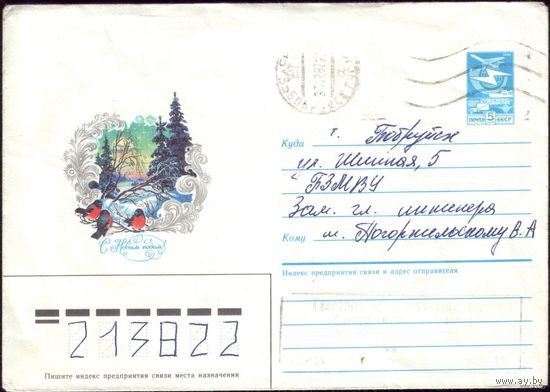 ПОЧТА 5 СССР
Куда г. Бобруйск
ул. Шмидта, 5
БЗМВУ
Зам. гл. инженера
Кому т. Погоржельскому В. А
С Новым годом!
Индекс предприятия связи и адрес отправителя
213822
Пишите индекс предприятия связи места назначения
www.ay.by